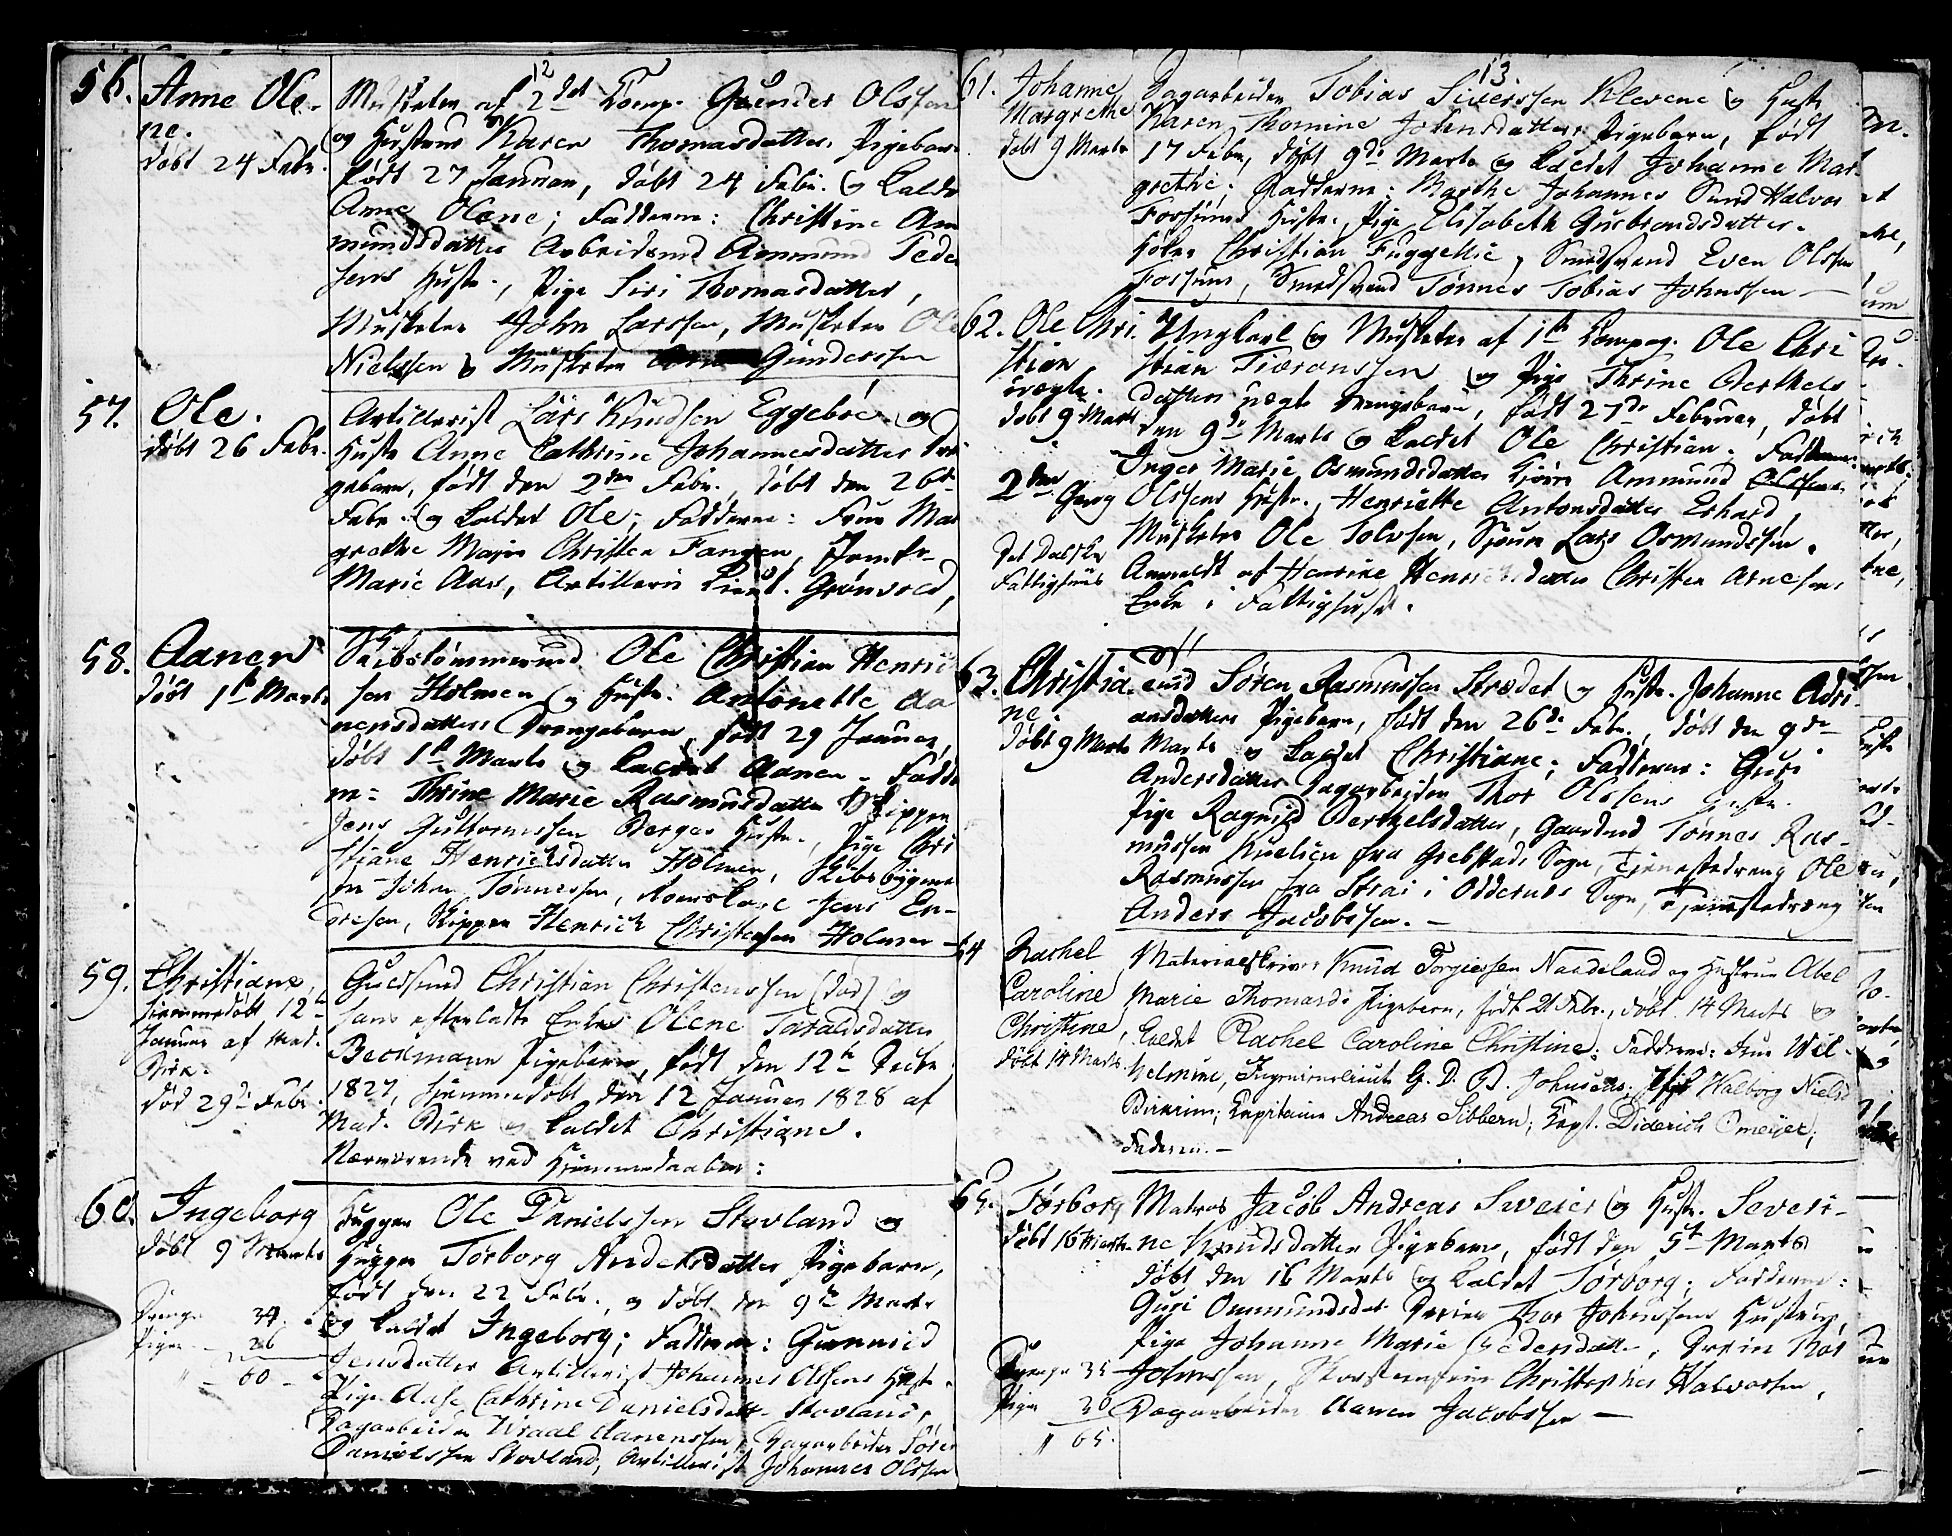 12
56. Anne Ole-
ne.
døbt 24 Febr.
Musketer af 2det Comp. Gunder Olssen
og Hustrue Karen Thomasdatters Pigebarn
født 27 Januar, døbt 24 Febr. og kaldt
Anne Olene; Fadderne: Christine Am
mundsdatter Arbeidsmd Ammund Peder
sens Hustr., Pige Siri Thomasdatter,
Musketer John Larssen, Musketer Ole
Nielssen og Musketer Gunderssen
57. Ole.
døbt 26 Febr.
Artillerist Lars Knudsen Eggebøe og
Hustr. Anne Cathrine Johannesdatters Dren
gebarn, født den 2den Febr., døbt den 26de
Febr. og kaldet Ole; Fadderne: Frue Mar
grethe Marie Christen Fangen, Jomfr.
Marie Aas, Artilleri Lieut. Grønvold,
58. Aanen
døbt 1te Marts
Skibstømmermd Ole Christian Henric
sen Holmen og Hustr. Antonette Aa
nensdatters Drengebarn, født 29 Januar,
døbt 1te Marts og kaldet Aanen. Fadder
ne: Thrine Marie Rasmusdatter Skipper
Jens Guttormssen Berges Hustr., Pige Chri
stiane Henrichsdatter Holmen, Skibsbygme
ster Johan Tønnessen, Jens En-
gresen, Skipper Henrich Christensen Holmen
59. Christiane,
hjemmedøbt 12te
Januar af Mad.
Birk.
død 29de Febr.
Guldsmed Christian Christenssen (død) og
hans efterladte Enke Olene Taraldsdatter
Beckmanns Pigebarn, født den 12te Decbr
1827, hjemmedøbt den 12 Januar 1828 af
Mad. Birk og kaldet Christiane.
Nærværende ved Hjemmedaaben:
60. Ingeborg
døbt 9 Marts
Drenge 34.
Piger 26
" - 60 -
Hugger Ole Danielssen Stovland og
Hustru Torborg Andersdatters Pigebarn,
født den 22 Febr., og døbt den 9de Marts
og kaldet Ingeborg; Fadderne: Gunnild
Jensdatter Artillerist Johannes Olssens Hustr.
Pige Aase Cathrine Danielsdatt. Stovland,
Dagarbeider Wraal Aanenssen, Dagarbeider Søren
Danielssen Stovland, Artillerist Johannes Olssen
13
61. Johanne
Margrethe
døbt 9 Marts
Dagarbeider Tobias Siverssen Klevene og Hustr
Karen Thomine Johnsdatters Pigebarn, født
17 Febr, døbt 9de Marts og kaldet Johanne Mar
grethe. Fadderne: Marthe Johannes Sund Halvor
Fossums Hustr., Pige Elisabeth Gusbrandsdatter.
Christian Fuggellie, Smedsvend Even Olssen
Fossum, Smedsvend Tønnes Tobias Johnssen —
62. Ole Chri-
stian
uægte.
døbt 9 Marts
2den
Gang
Det Dalske
Fattighuus
Ungkarl og Musketer af 1te Compag. Ole Chri
stian Tiøranssen og Pige Thrine Berthels
datters uægte Drengebarn, født 27de Februar, døbt
den 9de Marts og kaldet Ole Christian. Fadderne:
Inger Marie Osmundsdatter Ammund Olssens
Olssens Hustr., Henriette Antonsdatter Erhard,
Musketer Ole Tolvsen, Lars Osmundssen.
Anmeldt af Henrine Henrichsdatter Christen Arnesens
Enke i Fattighuset.
63. Christia
ne
døbt 9 Marts
Søren Rasmussen Strædet og Hustr. Johanne Adri
ansdatters Pigebarn, født den 26de Febr., døbt den 9de
Marts og kaldet Christiane; Fadderne: Guri
Andersdatter Dagarbeider Thor Olssens Hustr.
Pige Ragnild Berthelsdatter, Gaardmd Tønnes Ras-
mussen Kuelien fra Grebstads Sogn, Tjenestedreng Ole
Rasmussen fra Strai i Oddernes Sogn, Tjenestedreng
Anders Jacobssen. —
64 Rachel
Caroline
Christine,
døbt 14 Marts
Materialskriver Knud Torgiersen Naadeland og Hustrue Abel
Marie Thomasd. Pigebarn, født 21 Febr., døbt 14 Marts og
kaldet Rachel Caroline Christine; Fadderne: Frue Wil-
helmine, Ingenieurlieut. G. D. B. Johnsens; Pige Walborg Niels
Birkrim; Capitaine Andreas Sibbern; Capt. Diderich Omeyer;
Faderen. —
65. Torborg
døbt 16 Marts
Drenge 35
Piger 30
" 65.
Matros Jacob Andreas Sweier og Hustr. Severi-
ne Knudsdatters Pigebarn, født den 5te Marts
døbt den 16 Marts og kaldet Torborg; Fadderne:
Guri Ommundsdat. Thor Johnssens Hustrue,
Pige Johanne Marie Pedersdatt., Thor
Johnssen, Skorsteensfeier Christopher Halvorsen,
Dagarbeider Aanen Jacobssen —